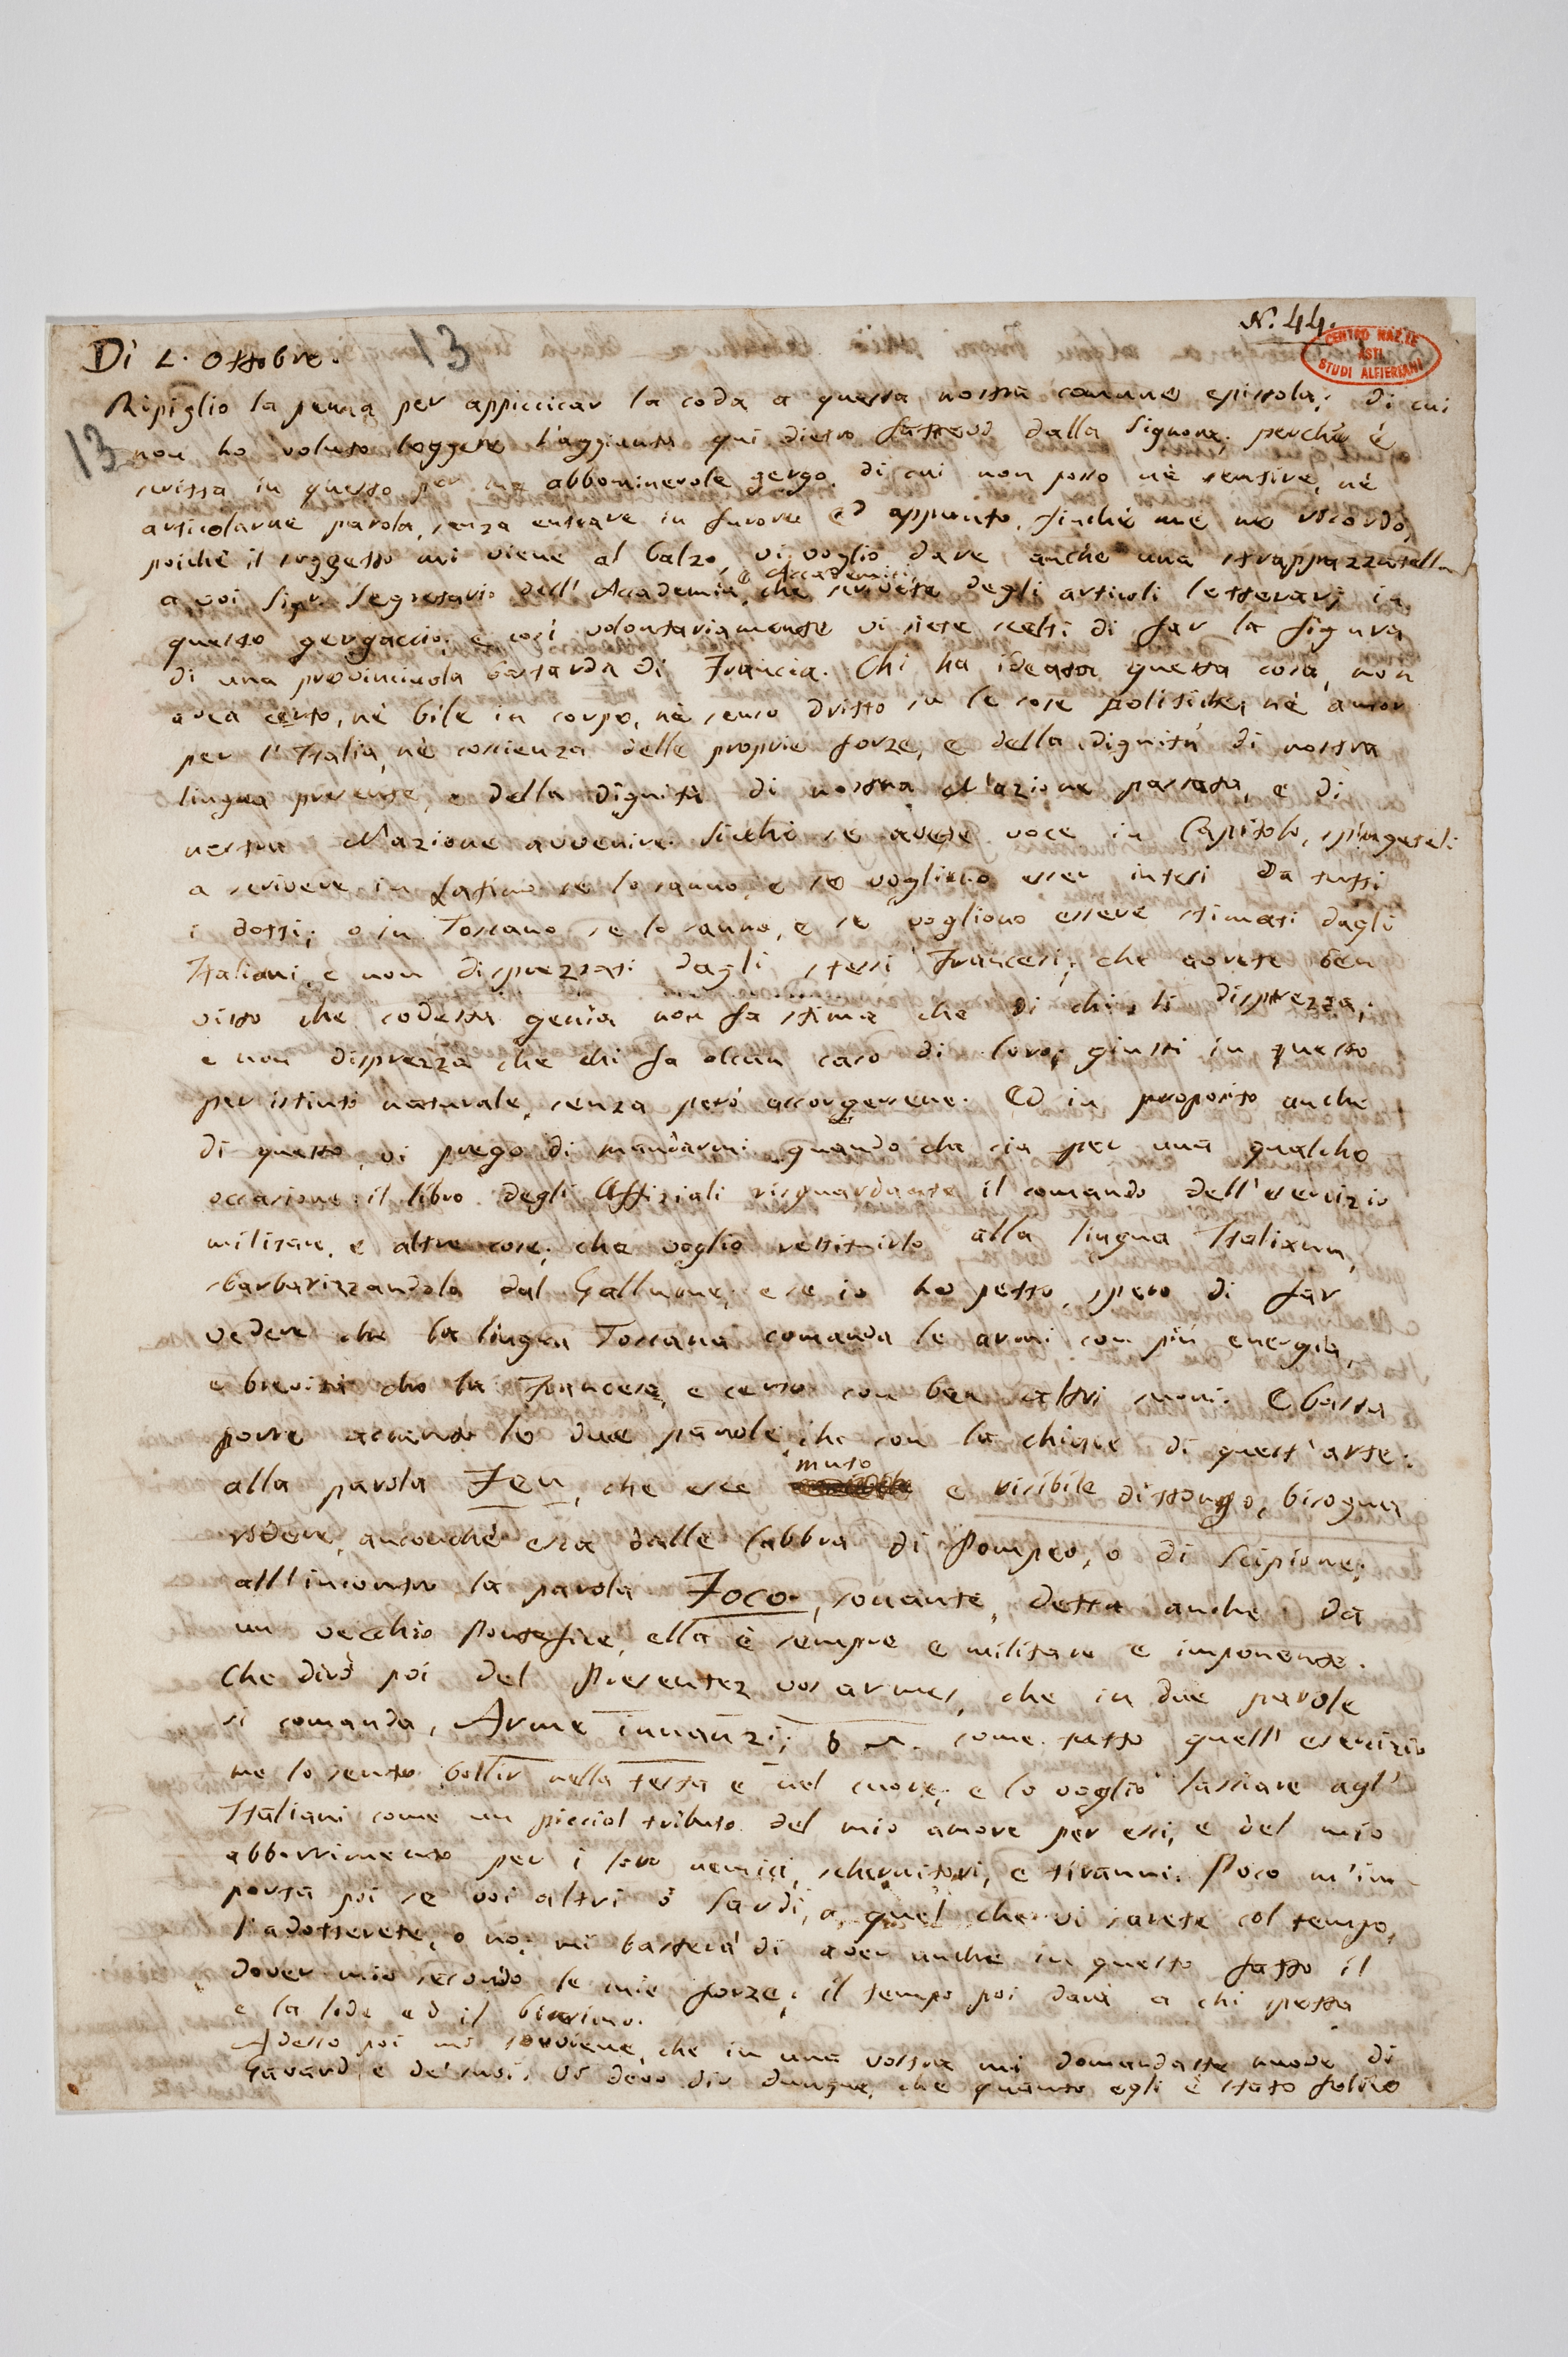 N. 44.
CENTRO NAZ.LE
ASTI
STUDI ALFIERIANI
13
Dì L. Ottobre.
13
Ripiglio la penna per appiccicar la coda a questa nostra comune epistola; di cui
non ho voluto leggere l'aggiunta qui dietro dalla Signora; perchè è
scritta in questo per me abbominevole gergo, di cui non posso nè sentire, nè
articolarne parola, senza entrare in furore ed appunto, finchè me ne ricordo,
poichè il soggetto mi viene al balzo, vi voglio dare anche una strappazzatella
a voi Sigr. Segretario dell' Accademia, e Accademici che scrivete degli articoli letterarj in
questo gergaccio; e così volontariamente vi siete scelti di far la figura
di una provinciuola bastarda di Francia. Chi ha ideata questa cosa, non
avea certo, nè bile in corpo, nè senso dritto su le cose politiche, nè amor
per l'Italia, nè coscienza delle proprie forze, e della dignità di nostra
lingua presente, e della dignità di nostra Nazione passata, e di
nostra Nazione avvenire. Sicchè se avete voce in Capitolo, spingeteli
a scrivere in Latino se lo sanno, e se vogliono esser intesi da tutti
i dotti; o in Toscano se lo sanno, e se vogliono essere stimati dagli
Italiani, e non disprezzati dagli stessi Francesi; che avrete ben
visto che codesta genìa non fa stima che di chi li disprezza;
e non disprezza che chi fa alcun caso di loro; giusti in questo
per istinto naturale, senza però accorgersene. Ed in proposito anche
di questo, vi prego di mandarmi quando che sia per una qualche
occasione il libro degli Uffiziali risguardante il comando dell'esercizio
militare, e altre cose; che voglio restituirlo alla lingua Italiana,
sbarbarizzandola dal Gallume; e se io ho petto, spero di far
vedere che la lingua Toscana comanda le armi con più energia,
e brevità che la Francese, e certo con ben altri suoni. E basta
porre accanto le due parole, che son la chiave di quest'arte.
alla parola Feu, che esce muto e risibile dittongo, bisogna
ridere, ancorchè esca dalle labbra di Pompeo, o di Scipione;
all'incontro la parola Foco, sonante, detta anche da
un vecchio Pontefice, ella è sempre e militare e imponente.
Che dirò poi del Presentez vos armes, che in due parole
si comanda, Arme innanzi; come tutto quell' esercizio
me lo sento bollir nella testa e nel cuore; e lo voglio lasciare agl'
Italiani come un picciol tributo del mio amore per essi, e del mio
abborrimento per i loro nemici, schernitori, e tiranni. Poco m'im-
porta poi se voi altri o Sardi, o quel che vi sarete col tempo,
l'adotterete, o no; mi basterà di aver anche in questo fatto il
dover mio secondo le mie forze; il tempo poi darà a chi spetta
e la lode ed il biasimo.
Adesso poi mi sovviene, che in una vostra mi domandaste nuove di
Gavard e de' suoi. Vi devo dir dunque, che quanto egli è stato felice